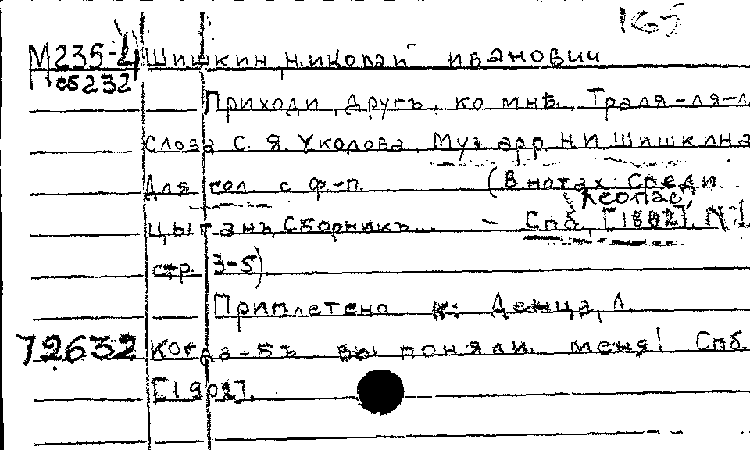 165
М235-4 Шишкин, Николай Иванович
об232
Приходи, другъ, ко мнѣ. Траля-ля-л
Слова С. Я. Уколова. Муз. арр. Н. И. Шишкина
Для гол. с ф-п. (В нотах: Среди
Цыганъ, Сборникъ. – Спб., Леопас, [1882]. N 1
стр. 3-5)
Приплетено к: Денца, Л.
72632 Когда-бъ вы поняли меня! Спб.
[1902].